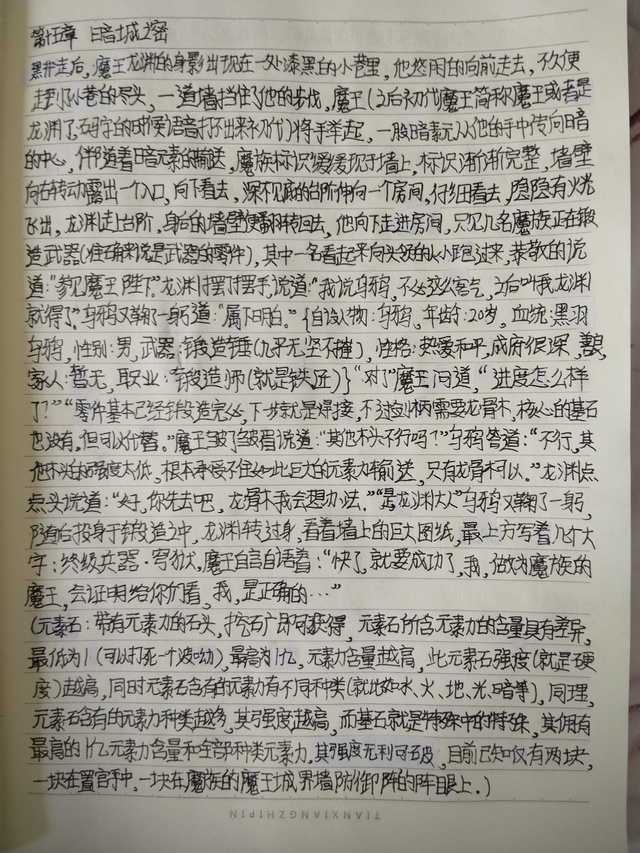 第十五章 暗城之密
黑井走后，魔王龙渊的身影出现在一处漆黑的小巷里，他悠闲的向前走去，不久便
走到小巷的尽头，一道墙挡住了他的步伐，魔王（之后初代魔王简称魔王或者是
龙渊了，码字的时候语音打不出来初代）将手举起，一股暗元素从他的手中传向暗
的中心，伴随着暗元素的输送，魔族标识缓缓现于墙上，标识渐渐完整，墙壁
向右转动露出一个入口，向下看去，深不见底的台阶伸向一个房间，仔细看去，隐隐有火光
飞出，龙渊走上台阶，身后的墙壁便翻转回去，他向下走进房间，只见几名魔族正在锻
造武器（准确来说是武器的零件），其中一名看起来向头领的人小跑过来，恭敬的说
道：“参见魔王陛下。”龙渊摆了摆手，说道：“我说乌鸦，不必这么客气，之后叫我龙渊
就得了。”乌鸦又鞠了一躬道：“属下明白。”{自设人物：乌鸦，年龄：20岁，血统：黑羽
乌鸦，性别：男，武器：锻造锤（几乎无坚不摧），性格：热爱和平，成府很深，善良，
家人：暂无，职业：锻造师（就是铁匠）}“对了”魔王问道，“进度怎么样
了？”“零件基本已经锻造完必，下一步就是焊接，不过剑柄需要龙骨木，核心的基石
也没有，但可以代替。”魔王皱了皱眉说道：“其他木头不行吗？”乌鸦答道：“不行，其
他木头的强度太低，根本承受不住如此巨大的元素力输送，只有龙骨木可以。”龙渊点
点头说道：“好，你先去吧，龙骨木我会想办法。”“是龙渊大人”乌鸦又鞠了一躬，
随后投身于锻造之中，龙渊转过身，看着墙上的巨大图纸，最上方写着几个大
字：终级兵器·穹狱，魔王自言自语着：“快了，就要成功了，我，做为魔族的
魔王，会证明给你们看，我，是正确的…”
（元素石：带有元素力的石头，挖石广即可获得，元素石所含元素力的含量具有差异，
最低为1（可以打死一个波呦），最高为1亿，元素力含量越高，此元素石强度（就是硬
度）越高，同时元素石含有的元素力有不同种类（就比如水、火、地、光、暗等），同理，
元素石含有的元素力种类越多，其强度越高，而基石就是特殊中的特殊，其拥有
最高的1亿元素力含量和全部种类元素力，其强度无利可破，目前已知仅有两块，
一块在置官手中，一块在魔族的魔王城界墙防御阵的阵眼上。）
TIANXIANGZHIPIN